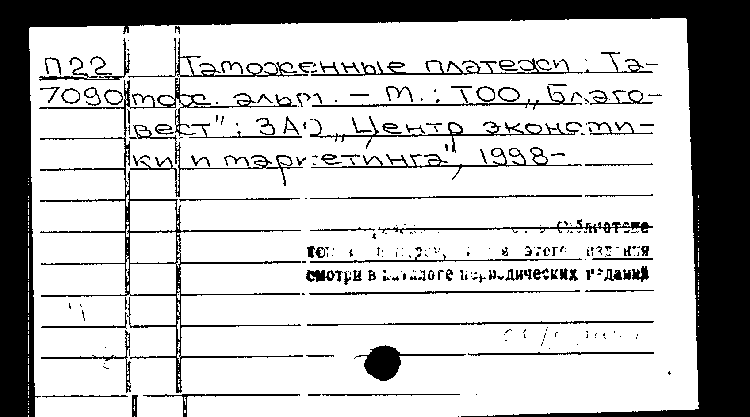 П22 Таможенные платежи : Та-
7090 мож. альм. – М. : ТОО „Благо-
вест" ; ЗАО „Центр экономи-
ки и маркетинга", 1998–
библиотеке
этого издания
смотри в каталоге периодических изданий